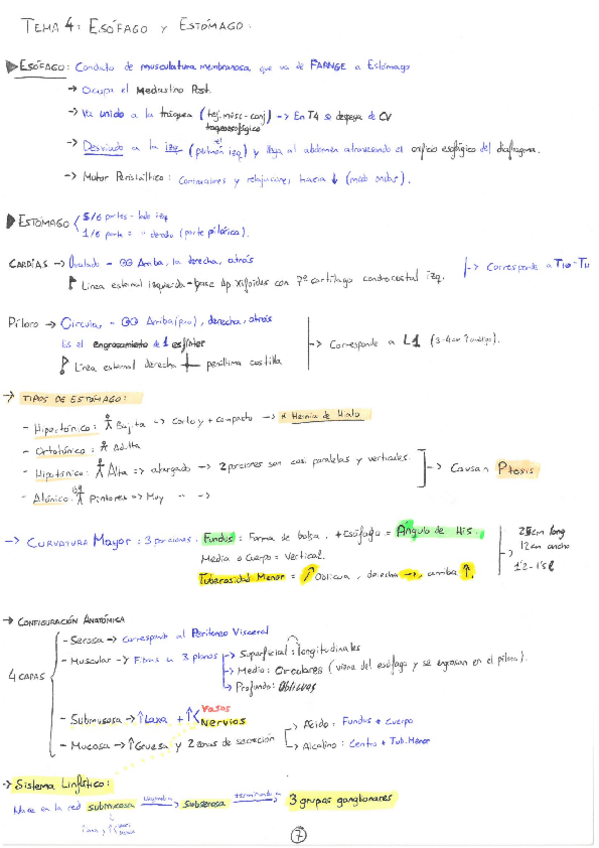 TEMA 4: ESÓFAGO Y ESTÓMAGO.
ESÓFAGO: Conducto de musculatura membranosa que va de FARINGE a Estómago
→ Ocupa el Mediastino Post.
→ Va unido a la tráquea (tej. musc-conj) → En T4 se despega de CV
→ Desviado a la izq (pulmón izq) y llega al abdomen atravesando el orificio esofágico del diafragma.
→ Motor Peristáltico: Contracciones y relajaciones hacia ↓ (modo ondas).
ESTÓMAGO
5/6 partes - lado izq
1/6 parte = " derecho (parte pilórica).
CARDIAS → Ovalado - Arriba, la derecha, atrás
Línea esternal izquierda - base Ap. xifoides con 7º cartílago condrocostal izq.
→ Corresponde a T10-T11
Píloro → Circular - Arriba, derecha, atrás
Es el engrosamiento de 1 esfínter
Línea esternal derecha penúltima costilla
→ Corresponde a L1
→ TIPOS DE ESTÓMAGO:
- Hipertónico: Bajita → corto y + compacto → * Hernia de Hiato
- Ortotónico: Adulta
- Hipotónico: Alta => alargado → 2 porciones son casi paralelas y verticales.
- Atónico: => Muy " " →
→ Causan Ptosis
→ CURVATURA Mayor: 3 porciones.
Fundus: Forma de bolsa. + Esófago = Ángulo de His.
Media o Cuerpo = Vertical.
Tuberosidad Menor = Oblicua, derecha →, arriba ↑.
25cm long
12cm ancho
1'2-1'5 l
→ CONFIGURACIÓN ANATÓMICA
4 CAPAS
- Serosa → corresponde al Peritoneo Visceral
- Muscular → Fibras en 3 planos
→ Superficial: longitudinales
→ Medio: Circulares (viene del esófago y se engrosan en el píloro).
→ Profundo: Oblicuos
- Submucosa → ↑ Laxa + ↑
Vasos
Nervios
- Mucosa → ↑ Gruesa y 2 zonas de secreción
→ Ácido: Fundus + Cuerpo
→ Alcalino: Centro + Tub. Menor
→ Sistema Linfático:
Nace en la red submucosa → Subserosa → terminando en 3 grupos ganglionares
7